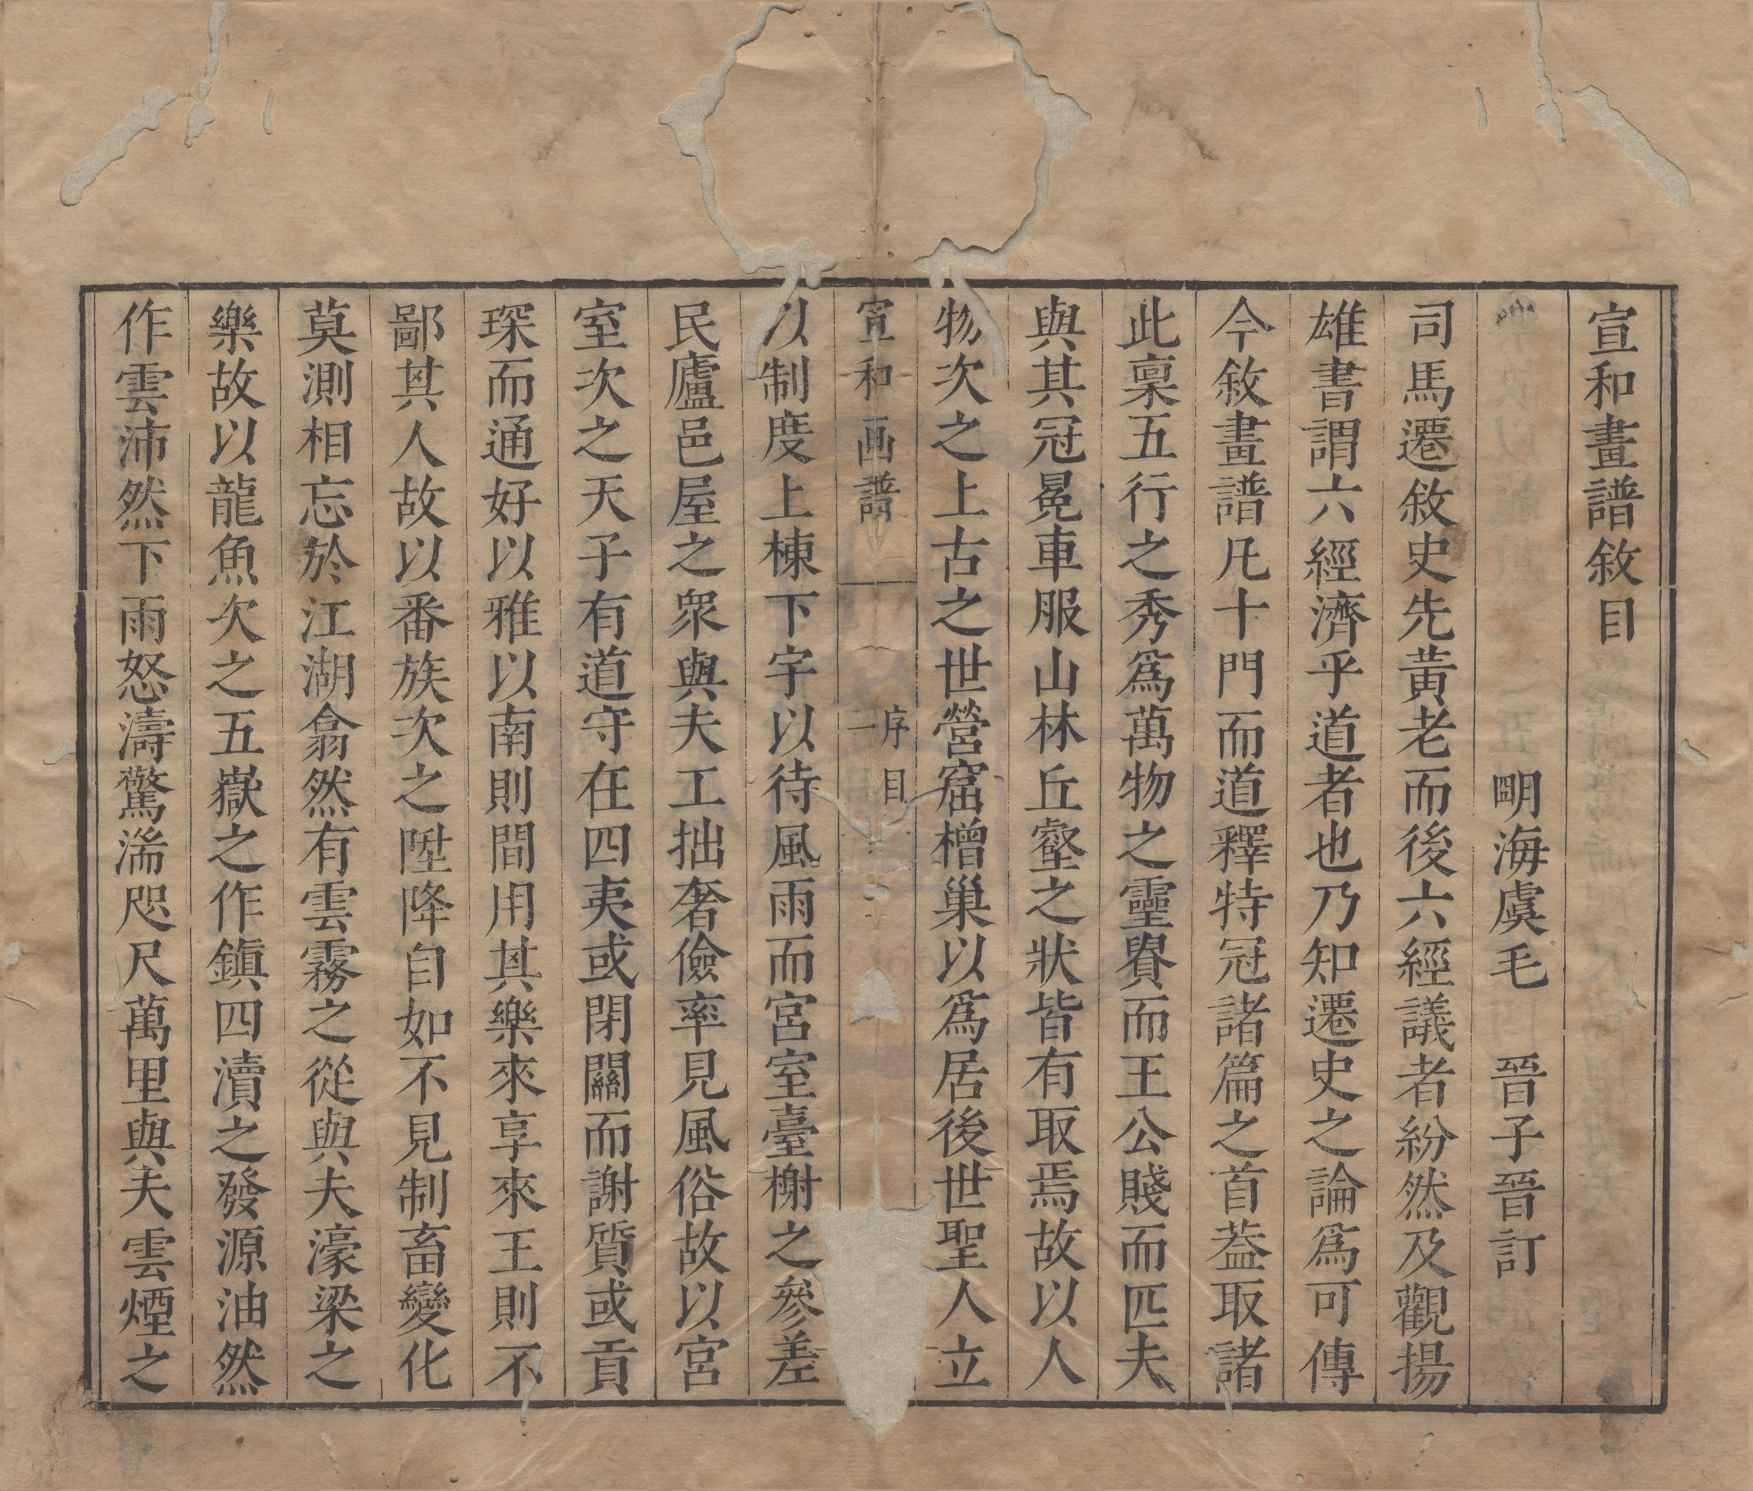 宣和畫譜敘目
明海虞毛 晉子晉訂
司馬遷敘史先黃老而後六經議者紛然及觀揚
雄書謂六經濟乎道者也乃知遷史之論爲可傳
今敘畫譜凡十門而道釋特冠諸篇之首蓋取諸
此稟五行之秀爲萬物之靈貴而王公賤而匹夫
與其冠冕車服山林丘壑之狀皆有取焉故以人
物次之上古之世營窟橧巢以爲居後世聖人立
宣和画譜
序目
二
以制度上棟下宇以待風雨而宮室臺榭之參差
民廬邑屋之衆與夫工拙奢儉率見風俗故以宮
室次之天子有道守在四夷或閉關而謝質或貢
琛而通好以雅以南則間用其樂來享來王則不
鄙其人故以番族次之陞降自如不見制畜變化
莫測相忘於江湖翕然有雲霧之從與夫濠梁之
樂故以龍魚次之五嶽之作鎮四瀆之發源油然
作雲沛然下雨怒濤驚湍咫尺萬里與夫雲煙之